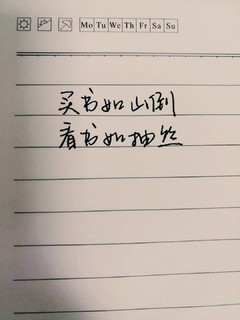 Mo Tu We Th Fr Sa Su
买书如山倒
看书如抽丝